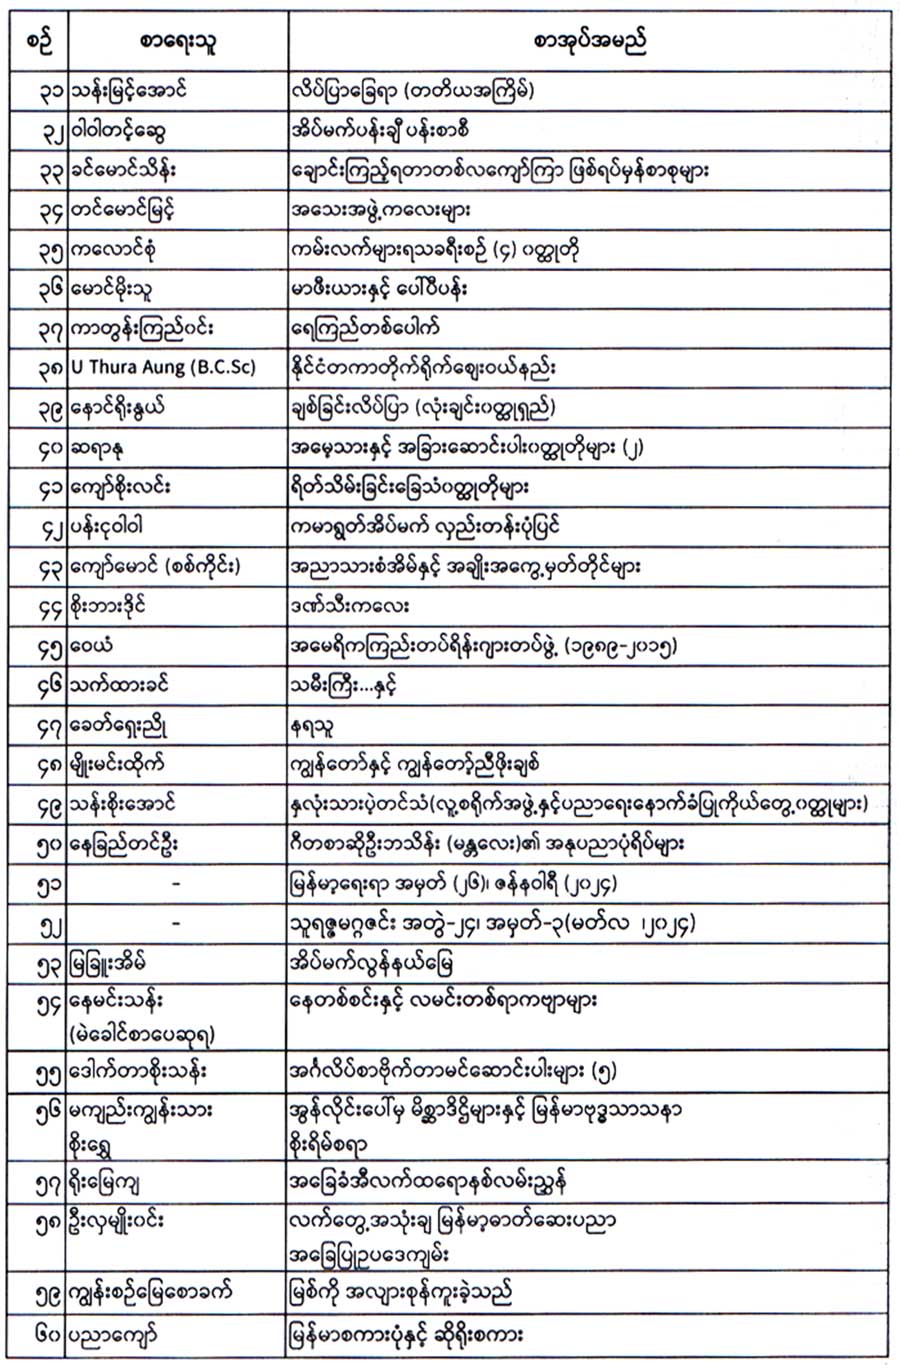 စဉ် စာရေးသူ စာအုပ်အမည်
၃၁ သန်းမြင့်အောင် လိပ်ပြာခြေရာ (တတိယအကြိမ်)
၃၂ ဝါဝါတင့်ဆွေ အိပ်မက်ပန်းချီ ပန်းစာစီ
၃၃ ခင်မောင်သိန်း ချောင်းကြည့်ရတာတစ်လကျော်ကြာ ဖြစ်ရပ်မှန်စာစုများ
၃၄ တင်မောင်မြင့် အသေးအဖွဲ့ကလေးများ
၃၅ ကလောင်စုံ ကမ်းလက်များရသခရီးစဉ် (၄) ၀တ္ထုတို
၃၆ မောင်မိုးသူ မာဖီးယားနှင့် ပေါ်ပီပန်း
၃၇ ကာတွန်းကြည်၀င်း ရေကြည်တစ်ပေါက်
၃၈ U Thura Aung (B.C.Sc) နိုင်ငံတကာတိုက်ရိုက်ဈေးဝယ်နည်း
၃၉ နောင်ရိုးနွယ် ချစ်ခြင်းလိပ်ပြာ (လုံးချင်း၀တ္ထုရှည်)
၄၀ ဆရာနု အမေ့သားနှင့် အခြားဆောင်းပါး၀တ္ထုတိုများ (၂)
၄၁ ကျော်စိုးလင်း ရိတ်သိမ်းခြင်းခြေသံ၀တ္ထုတိုများ
၄၂ ပန်းငုဝါဝါ ကမာရွတ်အိပ်မက် လှည်းတန်းပုံပြင်
၄၃ ကျော်မောင် (စစ်ကိုင်း) အညာသားစံအိမ်နှင့် အချိုးအကွေ့မှတ်တိုင်များ
၄၄ စိုးဘားဒိုင် ဒဏ်သီးကလေး
၄၅ ဝေယံ အမေရိကကြည်းတပ်ရိန်းဂျားတပ်ဖွဲ့ (၁၉၈၉-၂၀၁၅)
၄၆ သက်ထားခင် သမီးကြီး...နှင့်
၄၇ ခေတ်ရှေးညို နရသူ
၄၈ မျိုးမင်းထိုက် ကျွန်တော်နှင့် ကျွန်တော့်ညီဖိုးချစ်
၄၉ သန်းစိုးအောင် နှလုံးသားပဲ့တင်သံ(လူ့စရိုက်အဖွဲ့နှင့်ပညာရေးနောက်ခံပြုကိုယ်တွေ့၀တ္ထုများ)
၅၀ နေခြည်တင်ဦး ဂီတစာဆိုဦးဘသိန်း (မန္တလေး)၏ အနုပညာပုံရိပ်များ
၅၁ - မြန်မာ့ရေးရာ အမှတ် (၂၆)၊ ဇန်နဝါရီ (၂၀၂၄)
၅၂ - သူရဇ္ဇမဂ္ဂဇင်း အတွဲ-၂၄၊ အမှတ်-၃(မတ်လ ၊၂၀၂၄)
၅၃ မြခြူးအိမ် အိပ်မက်လွန်နယ်မြေ
၅၄ နေမင်းသန်း နေတစ်စင်းနှင့် လမင်းတစ်ရာကဗျာများ
(မဲခေါင်စာပေဆုရ)
၅၅ ဒေါက်တာစိုးသန်း အင်္ဂလိပ်စာဗိုက်တာမင်ဆောင်းပါးများ (၅)
၅၆ မကျည်းကျွန်းသား အွန်လိုင်းပေါ်မှ မိစ္ဆာဒိဋ္ဌိများနှင့် မြန်မာဗုဒ္ဓသာသနာ
စိုးရွှေ စိုးရိမ်စရာ
၅၇ ရိုးမြေကျ အခြေခံအီလက်ထရောနစ်လမ်းညွှန်
၅၈ ဦးလှမျိုး၀င်း လက်တွေ့အသုံးချ မြန်မာ့ဓာတ်ဆေးပညာ
အခြေပြုဥပဒေကျမ်း
၅၉ ကျွန်းစဉ်မြေစောခက် မြစ်ကို အလျားစုန်ကူးခဲ့သည်
၆၀ ပညာကျော် မြန်မာစကားပုံနှင့် ဆိုရိုးစကား